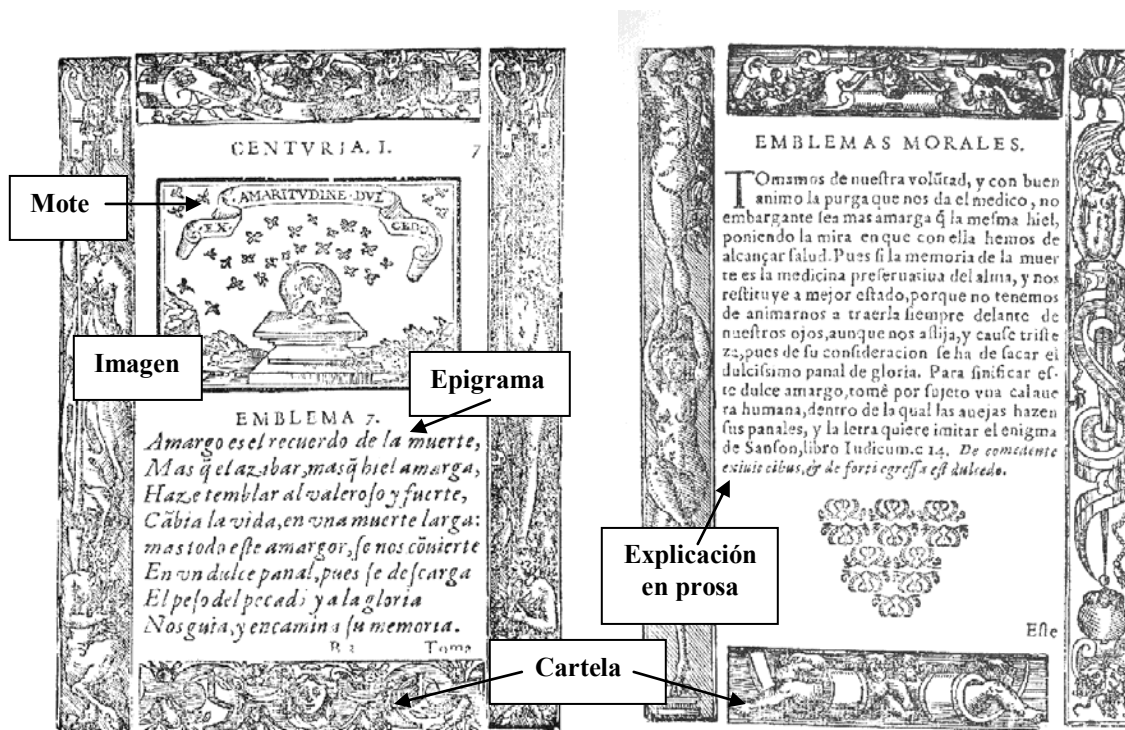 CENTVRIA. I. 7
Mote
AMARITVDINE DVL
EX
CEDO
Imagen
Epigrama
EMBLEMA 7.
Amargo es el recuerdo de la muerte,
Mas q̃ el azibar, mas q̃ hiel amarga,
Haze temblar al valeroso y fuerte,
Cãbia la vida, en vna muerte larga:
mas todo este amargor, se nos cõuierte
En vn dulce panal, pues se descarga
El peso del pecado y a la gloria
Nos guia, y encamina su memoria.
Toma
Cartela
EMBLEMAS MORALES.
TOmamos de nuestra volũtad, y con buen
animo la purga que nos da el medico, no
embargante sea mas amarga q̃ la mesma hiel,
poniendo la mira en que con ella hemos de
alcançar salud. Pues si la memoria de la muer
te es la medicina preseruatiua del alma, y nos
restituye a mejor estado, porque no tenemos
de animarnos a traerla siempre delante de
nuestros ojos, aunque nos aflija, y cause triste
za, pues de su consideracion se ha de sacar el
dulcissimo panal de gloria. Para sinificar es-
te dulce amargo, tomè por sujeto vna calaue
ra humana, dentro de la qual las auejas hazen
sus panales, y la letra quiere imitar el enigma
de Sanson, libro Iudicum. c 14. De comedente
exiuit cibus, & de forti egressa est dulcedo.
Explicación
en prosa
Este